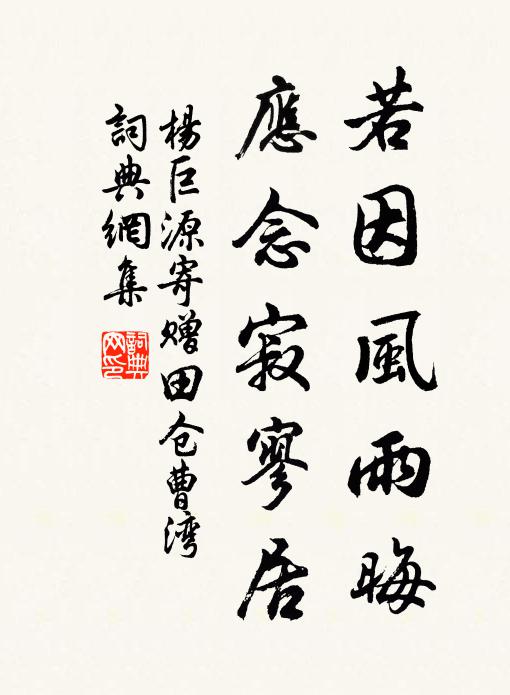 若因風雨晦
應念寂寥居
楊巨源寄赠田仓曹湾
詞典網集
詞典网印